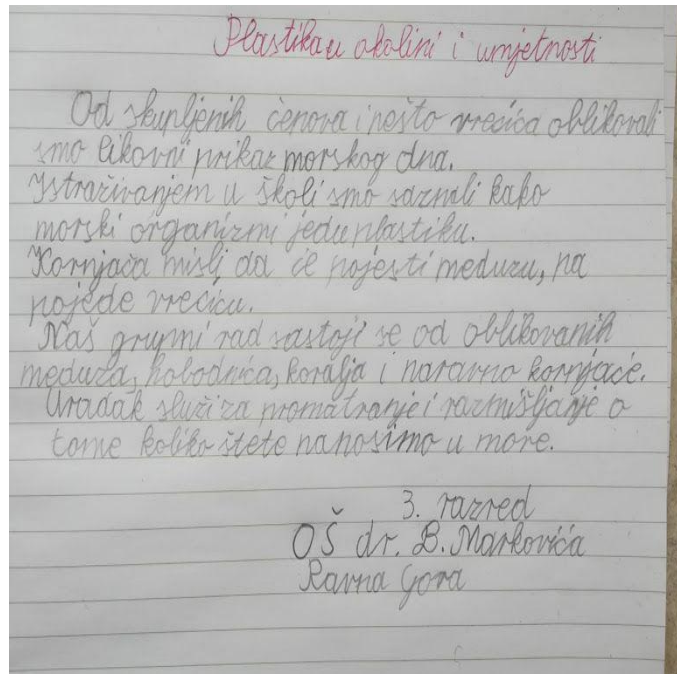 Plastika u okolini i umjetnosti
Od skupljenih čepova i nešto vrećica oblikovali
smo likovni prikaz morskog dna.
Istraživanjem u školi smo saznali kako
morski organizmi jedu plastiku.
Kornjača misli da će pojesti meduzu, pa
pojede vrećicu.
Naš grupni rad sastoji se od oblikovanih
meduza, hobodnica, koralja i naravno kornjače.
Uradak služi za promatranje i razmišljanje o
tome koliko štete nanosimo u more.
3. razred
OŠ dr. B. Markovića
Ravna Gora